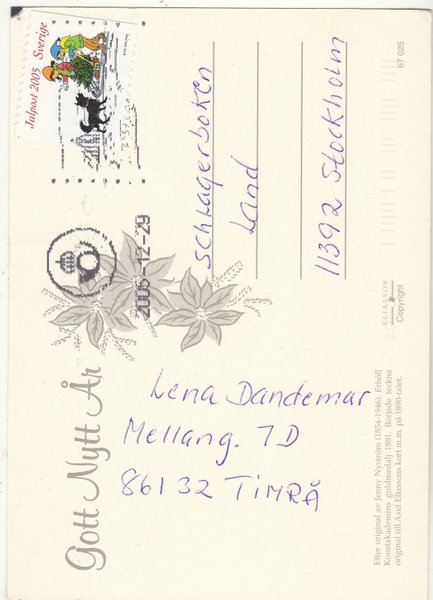 Julpost 2005 Sverige
2005-12-29
Schlagerboken
Land
11392 Stockholm
67 025
Gott Nytt År
Lena Dandemar
Mellang. 7D
86132 TIMRÅ
ELIASSON
Copyright
Efter original av Jenny Nyström (1854-1946). Erhöll
Konstakademins guldmedalj 1881. Började teckna
original till Axel Eliassons kort m.m. på 1890-talet.